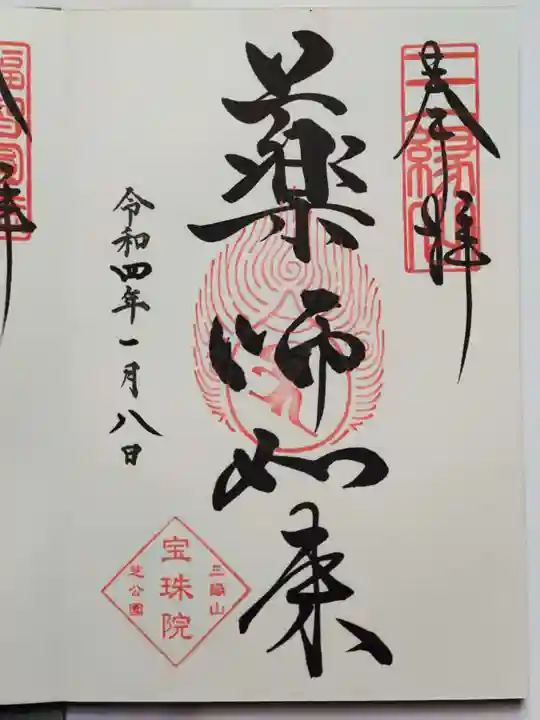 奉拝
薬師如来
令和四年一月八日
三縁山
宝珠院
芝公園